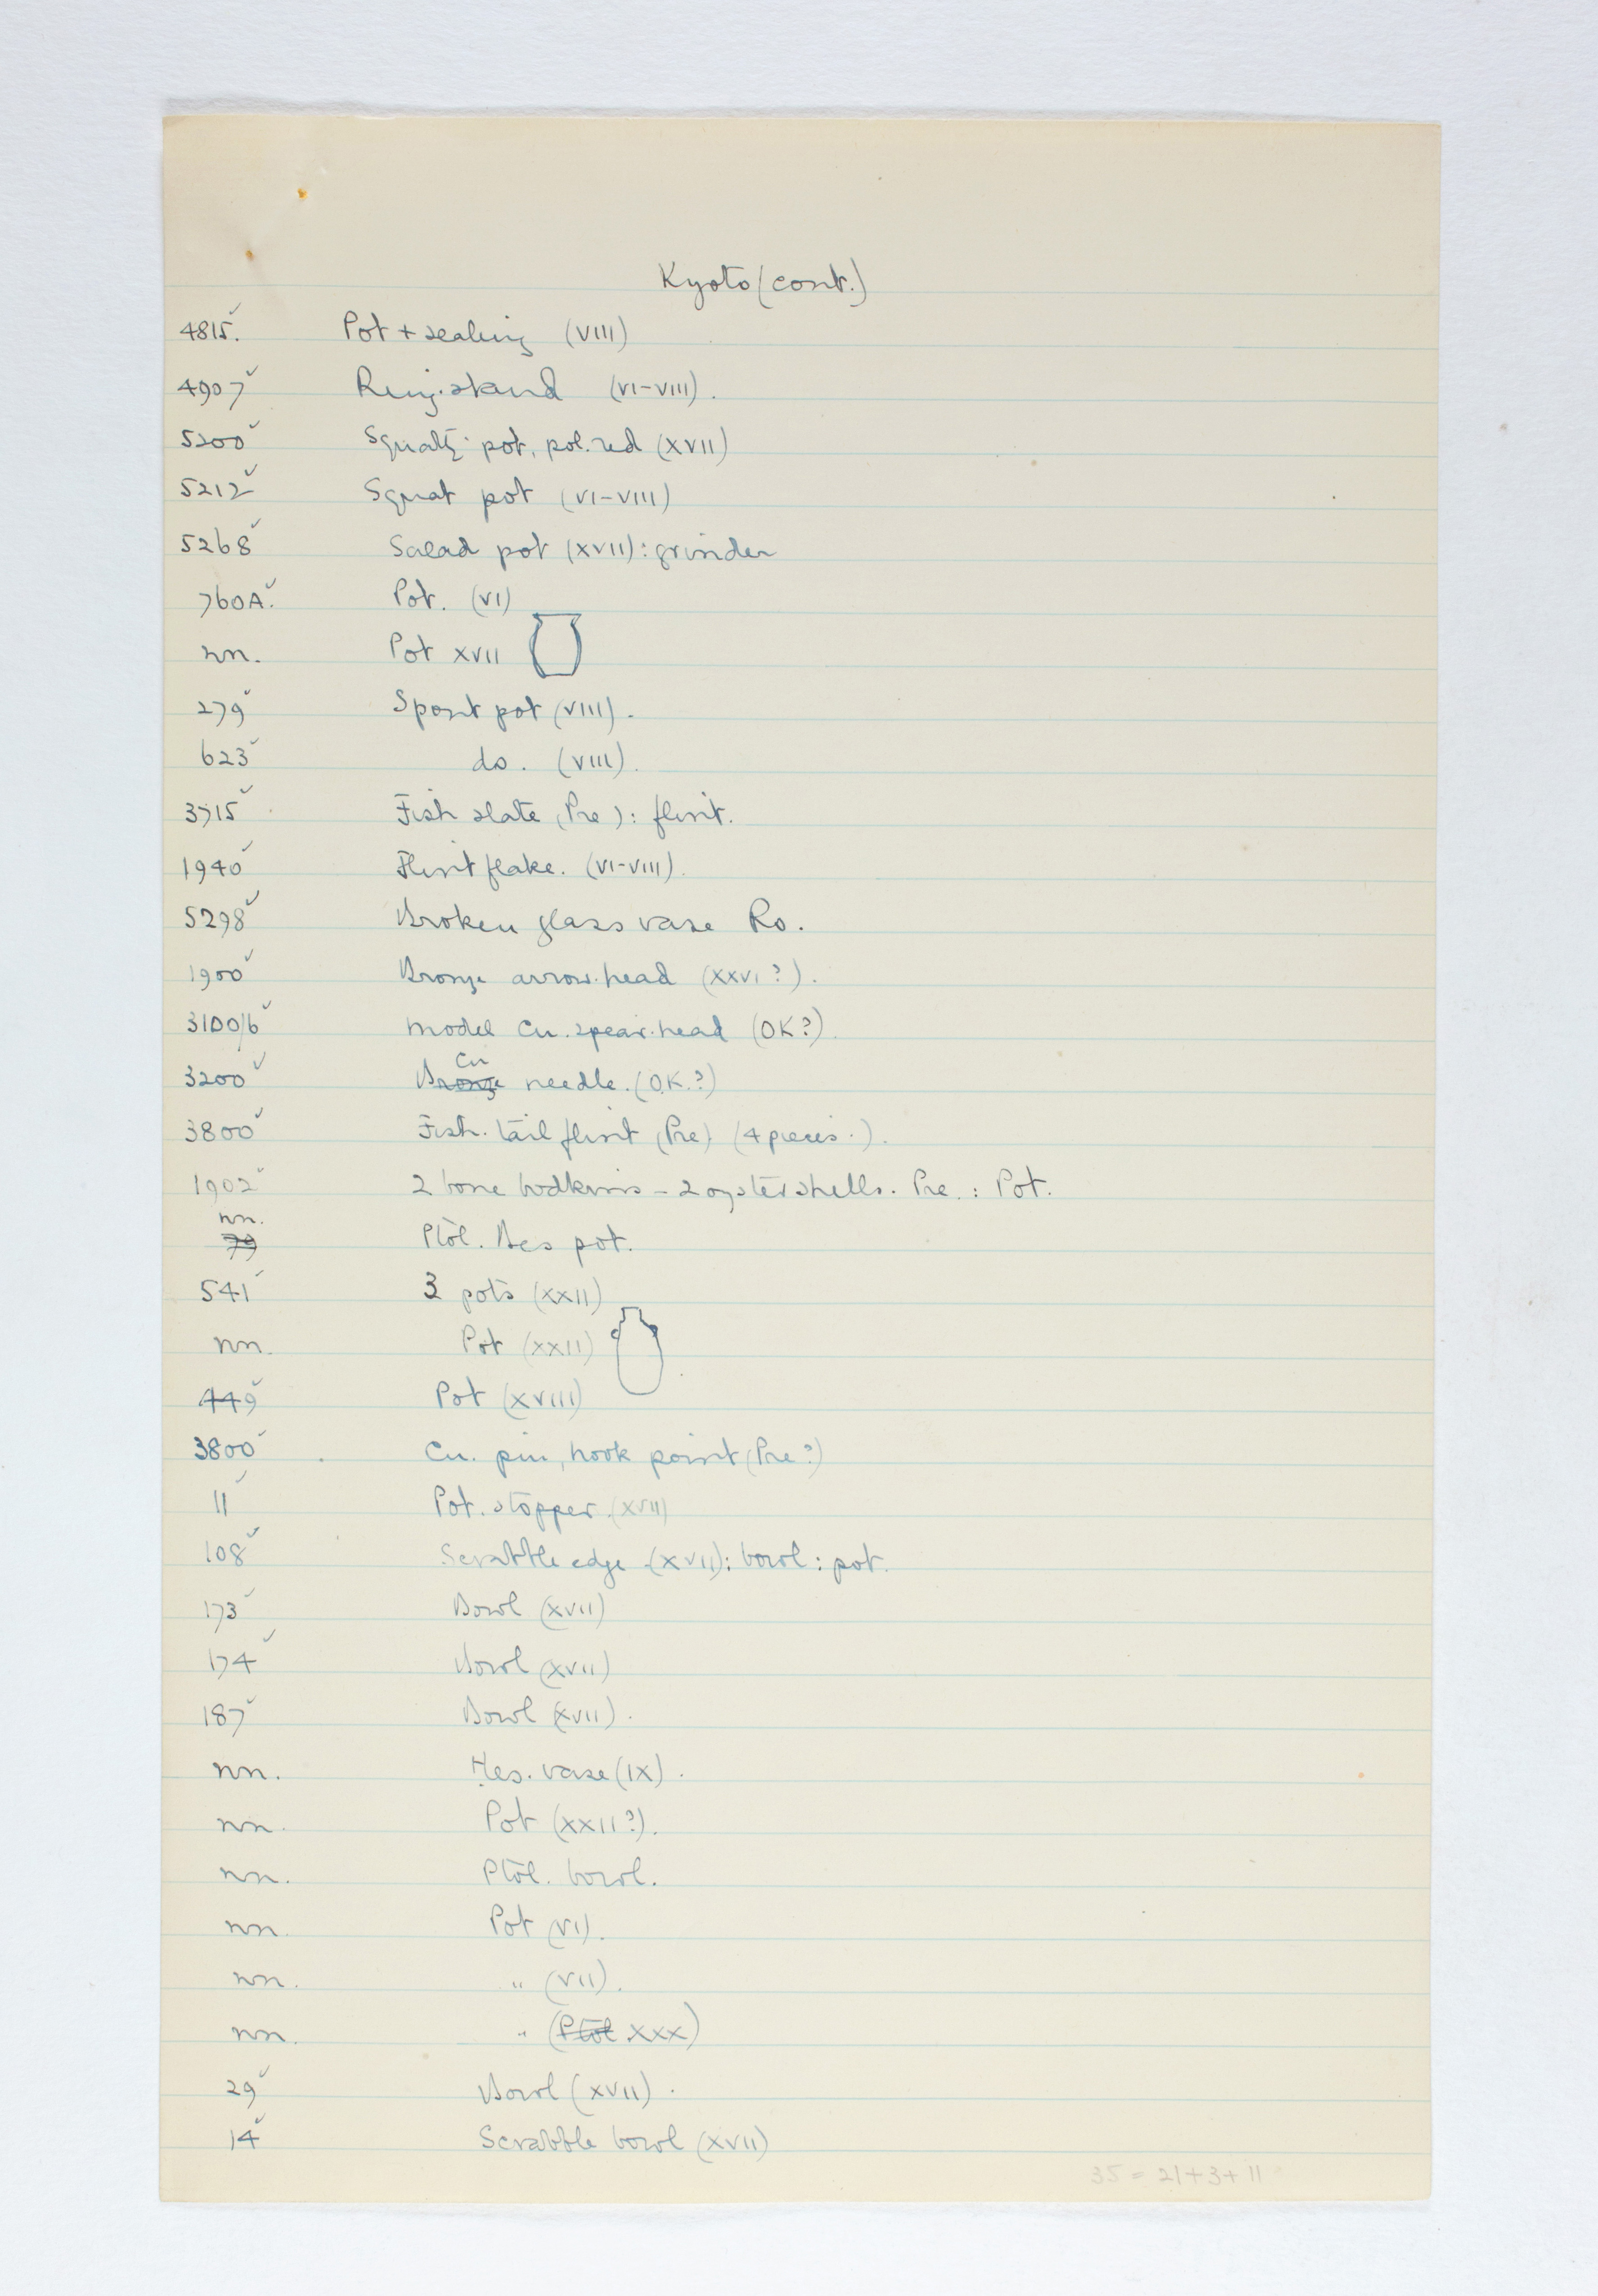 Kyoto (cont.)
4815. Pot + sealing (VIII)
4907 Ring-stand (VI-VIII).
5200 Squat pot, pol. red (XVII)
5212 Squat pot (VI-VIII)
5268 Salad pot (XVII): grinder
760A. Pot. (VI)
nn. Pot XVII
279 Spout pot (VIII).
623 do. (VIII).
3715 Fish slate (Pre): flint.
1940 Flint flake. (VI-VIII).
5298 Broken glass vase Ro.
1900 Bronze arrow-head (XXVI?).
3100/6 model Cu. spear-head (OK?).
Cu
3200 Bronze needle. (O.K.?)
3800 Fish-tail flint (Pre) (4 pieces.).
1902 2 bone bodkins - 2 oyster shells. Pre. : Pot.
nn.
79 Ptol. Bes pot.
541 3 pots (XXII)
nn. Pot (XXII)
449 Pot (XVIII)
3800 Cu. pin, hook point (Pre?)
11 Pot. stopper. (XVII)
108 Scrabble edge (XVII): bowl: pot.
173 Bowl (XVII)
174 Bowl (XVII)
187 Bowl (XVII).
nn. Hes. vase (IX).
nn. Pot (XXII?).
nn. Ptol. bowl.
nn. Pot (VI).
nn. " (VII).
nn. " (Ptol. XXX)
29 Bowl (XVII).
14 Scrabble bowl (XVII)
35 = 21 + 3 + 11